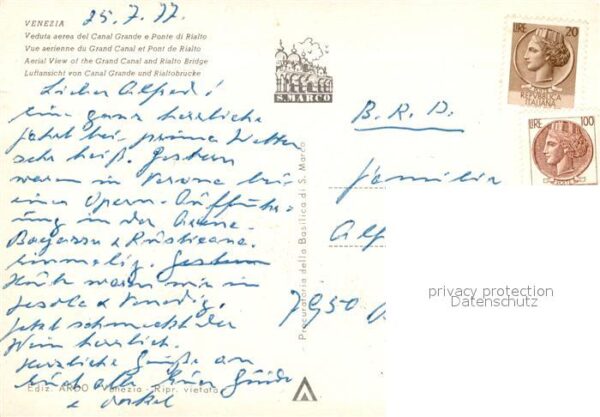 VENEZIA
25.7.77
Veduta aerea del Canal Grande e Ponte di Rialto
Vue aerienne du Grand Canal et Pont de Rialto
Aerial View of the Grand Canal and Rialto Bridge
Luftansicht von Canal Grande und Rialtobrucke
S. MARCO
LIRE 20
REPUBBLICA ITALIANA
LIRE 100
Lieber Alfred!
eine ganz herrliche
Fahrt bei prima Wetter
sehr heiß. Gestern
waren in Verona bei
einer Opern-Aufführ-
ung in der Arena.
Rusticana.
einmalig. Gestern
Heute waren wir in
Jesolo & Venedig.
Jetzt schmeckt der
Wein herrlich.
Herzliche Grüße an
Euch alle
B.R.D.
Familie
Alf
7950
Procuratoria della Basilica di S. Marco
privacy protection
Datenschutz
Ediz. ARDO Venezia - Ripr. vietata